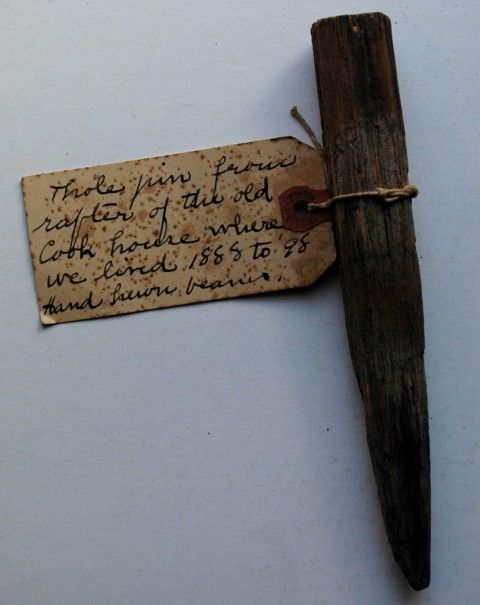 Thole pin from
rafter of the old
Cook house where
we lived 1888 to '98
Hand hewn beams.